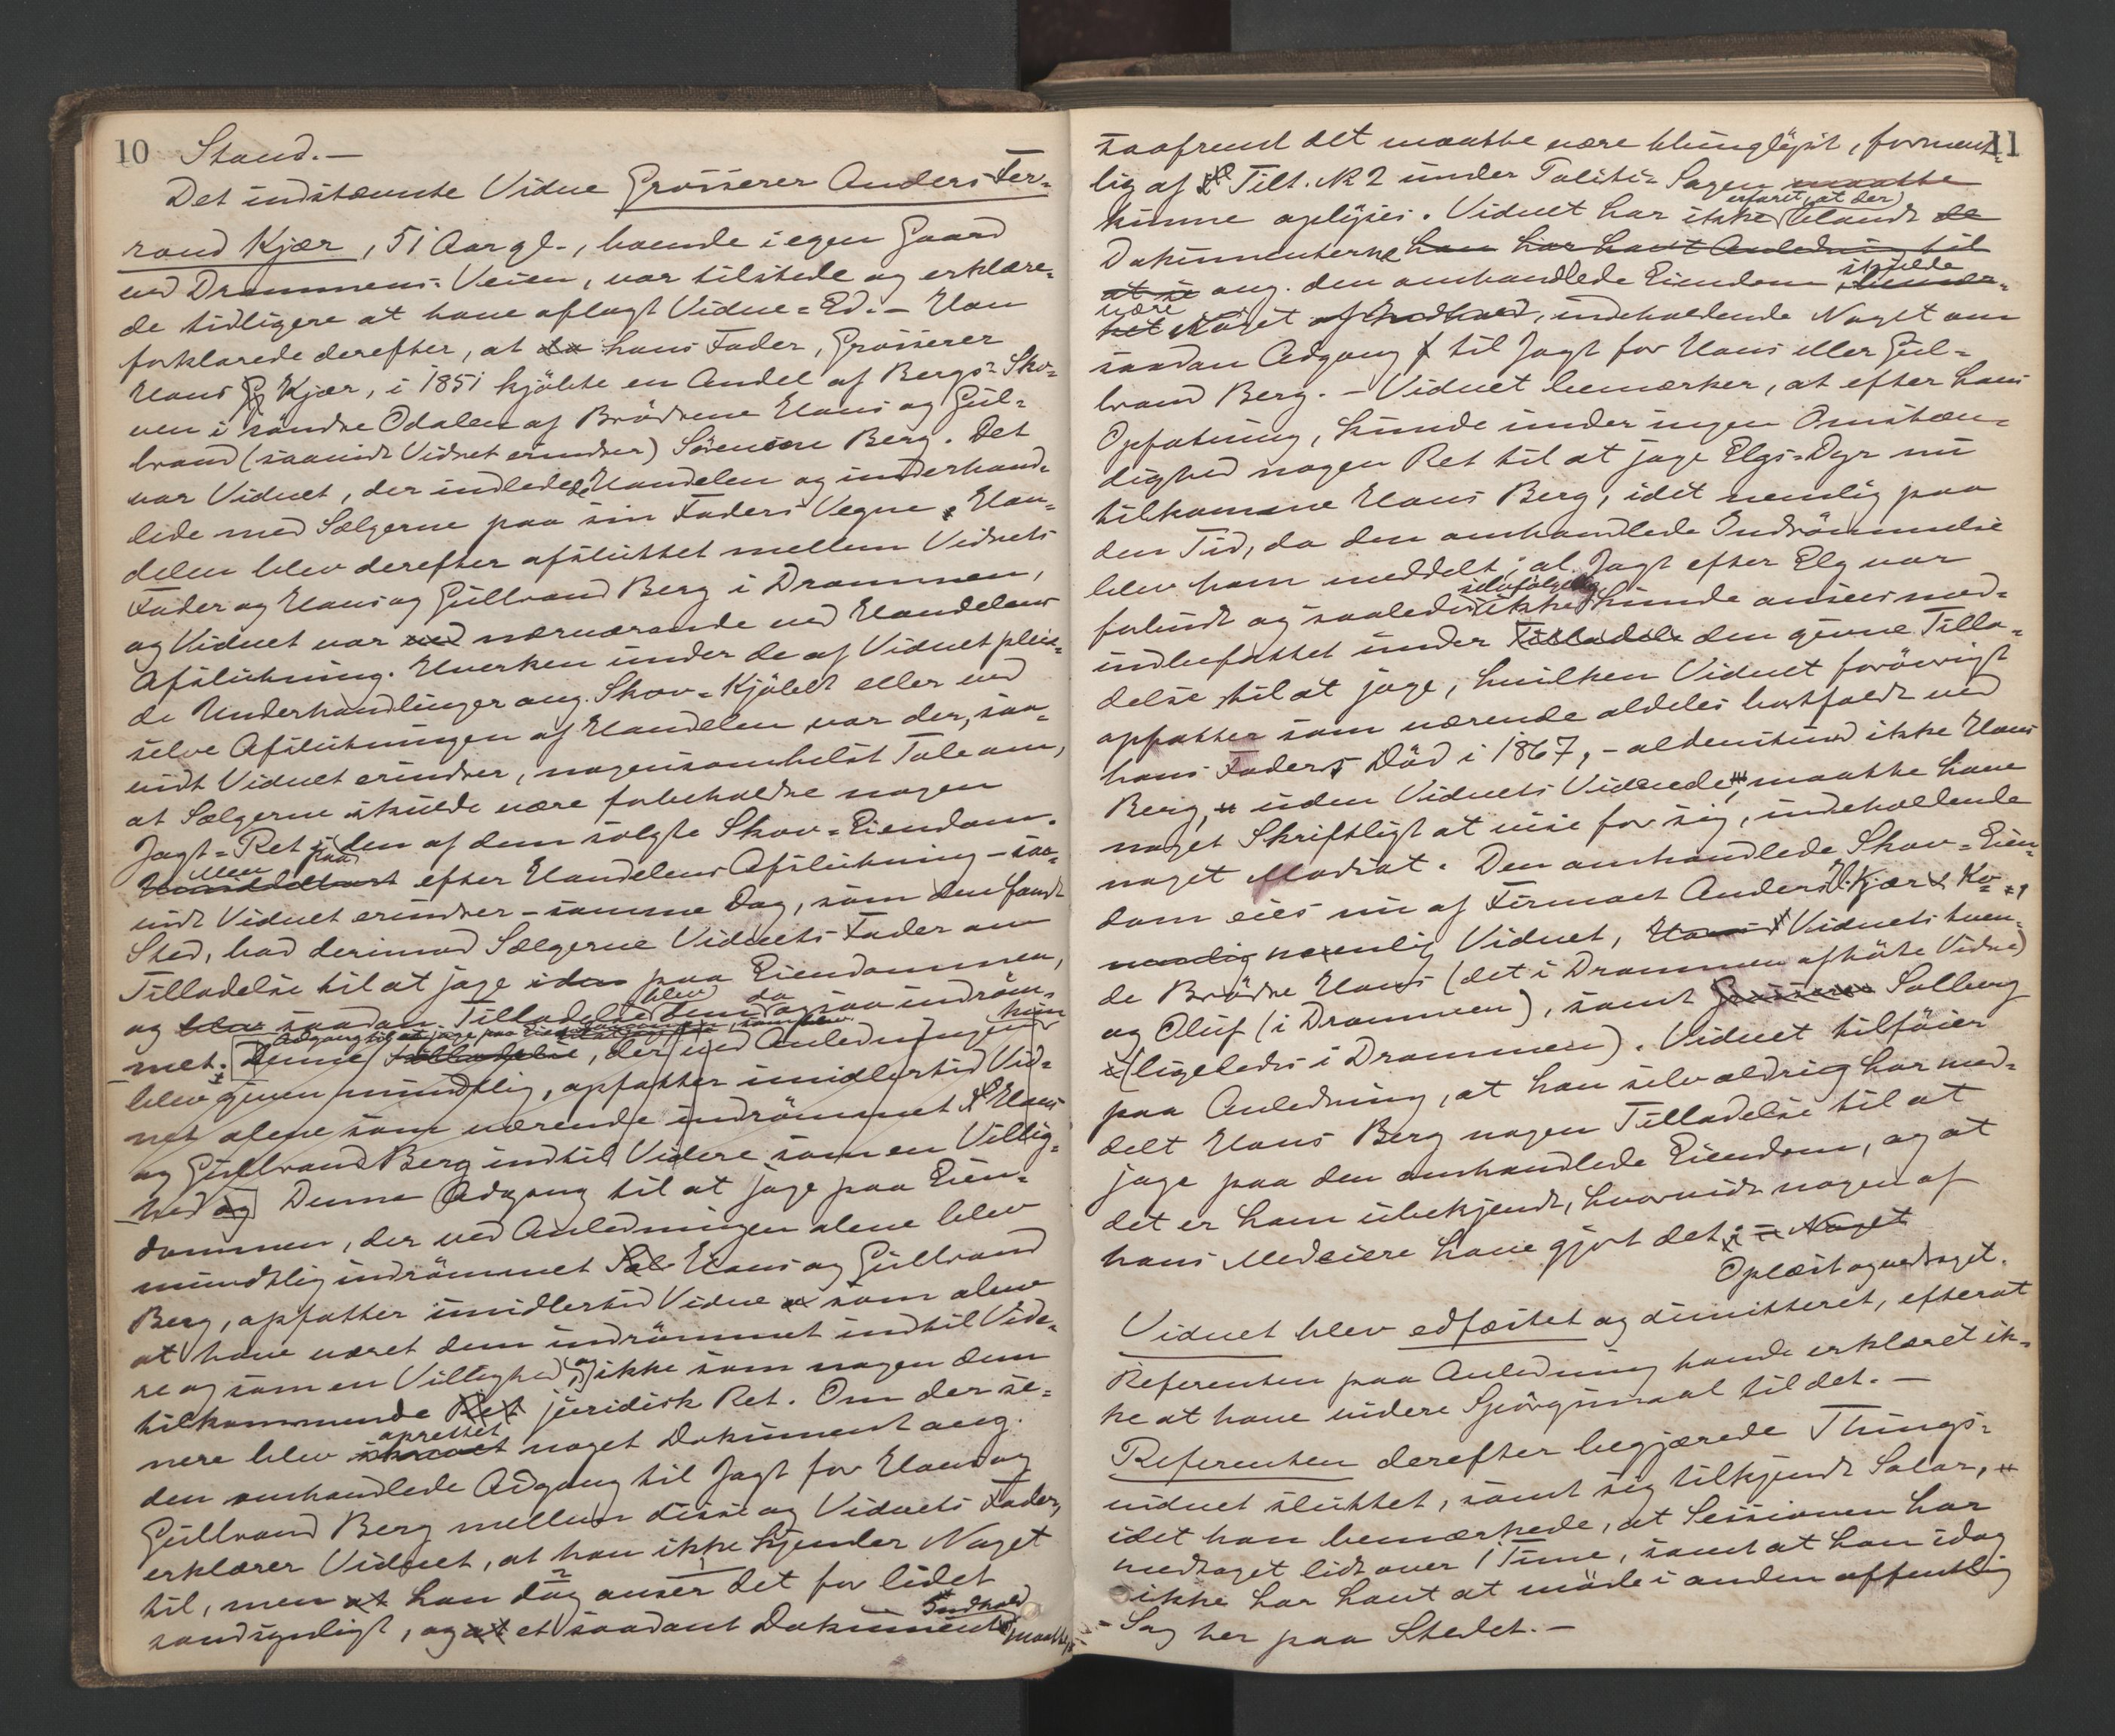 10 Stand. —
Det indstævnte Vidne Grosserer Anders Fer-
rand Kjær, 51 Aar gl., boende i egen Gaard
ved Drammens-Veien, var tilstede og erklære-
de tidligere at have aflagt Vidne-Ed. — Han
forklarede derefter, at da hans Fader, Grosserer
Hans Kjær, i 1851 kjøbte en Andel af Bergs-Sko-
ven i søndre Odalen af Brødrene Hans og Gul-
brand (saavidt Vidnet erindrer) Sørensøn Berg. Det
var Vidnet, der indledede Handelen og underhand-
lede med Sælgerne paa sin Faders Vegne. Han-
delen blev derefter afsluttet mellem Vidnets
Fader og Hans og Gulbrand Berg i Drammen,
og Vidnet var ved nærværende ved Handelens
Afslutning. Hverken under de af Vidnet pleie-
de Underhandlinger ang. Skov-Kjøbet eller ved
selve Afslutningen af Handelen var der, saa-
vidt Vidnet erindrer, nogensomhelst Tale om,
at Sælgerne skulde være forbeholdne nogen
Jagt-Ret i paa den af dem solgte Skov-Eiendom.
Men Umiddelbart efter Handelens Afslutning – saa-
vidt Vidnet erindrer – samme Dag, som den fandt
Sted, bad derimod Sælgerne Vidnets Fader om
Tilladelse til at jage iden paa Eiendommen,
og blev saadan Tilladelse blev dem da ogsaa indrøm-
met. Denne Adgang til at jage paa Eiendommen, som blev Tilladelse, der ved Anledningen kun
blev given mundtlig, opfatter imidlertid Vid-
net alene som værende indrømmet Hans
og Gulbrand Berg indtil Videre som en Villig-
hed og Denne Adgang til at jage paa Eien-
dommen, der ved Anledningen alene blev
mundtlig indrømmet Sæl Hans og Gulbrand
Berg, opfatter imidlertid Vidne som alene
at have været dem indrømmet indtil Vide-
re og som en Villighed og ikke som nogen dem
tilkommende Ret juridisk Ret. Om der se-
nere blev skrevet oprettet noget Dokument ang.
den omhandlede Adgang til Jagt for Hans og
Gulbrand Berg mellem disse og Vidnets Fader,
erklærer Vidnet, at han ikke kjender Noget
til, men at han dog anser det for lidet
sandsynligt, og at et saadant Dokuments Indhold maatte,
11
saafremt det maatte være thinglyst, forment-
lig af Tilt. № 2 under Politi-Sagen maatte
kunne oplyses. Vidnet har ikke erfaret, at der blandt de
Dokumenterne han har havt Anledning til
at se ang. den omhandlede Eiendom skulde
være Noget af Indhold, indeholdende Noget om
saadan Adgang til Jagt for Hans eller Gul-
brand Berg. — Vidnet bemærker, at efter hans
Opfatning, kunde under ingen Omstæn-
dighed nogen Ret til at jage Elgs-Dyr nu
tilkomme Hans Berg, idet nemlig paa
den Tid, da den omhandlede Indrømmelse
blev ham meddelt, al Jagt efter Elg var
forbudt og saaledes selvfølgelig ikke kunde ansees med-
indbefattet under Tilladelse den givne Tilla-
delse til at jage, hvilken Vidnet forøvrigt
opfatter som værende aldeles bortfaldt ved
hans Faders Død i 1867, – aldenstund ikke Hans
Berg, uden Vidnets Vidende, maatte have
noget Skriftligt at vise for sig, indeholdende
noget Modsat. Den omhandlede Skov-Eien-
dom eies nu af Firmaet Anders F. Kjær & Ko,
nemlig nemlig Vidnet, Hans Vidnets tven-
de Brødre Hans (det i Drammen afhørte Vidne)
og Oluf (i Drammen), samt Grosserer Solberg
(ligeledes i Drammen). Vidnet tilføier
paa Anledning, at han selv aldrig har med-
delt Hans Berg nogen Tilladelse til at
jage paa den omhandlede Eiendom, og at
det er ham ubekjendt, hvorvidt nogen af
hans Medeiere have gjort det. — Noget
Oplæst og vedtaget.
Vidnet blev edfæstet og dimitteret, efterat
Referenten paa Anledning havde erklæret ik-
ke at have videre Spørgsmaal til det. —
Referenten derefter begjærede Things-
vidnet sluttet, samt sig tilkjendt Salær,
idet han bemærkede, at Sessionen har
medtaget lidt over 1 Time, samt at han idag
ikke har havt at møde i anden offentlig
Sag her paa Stedet. —